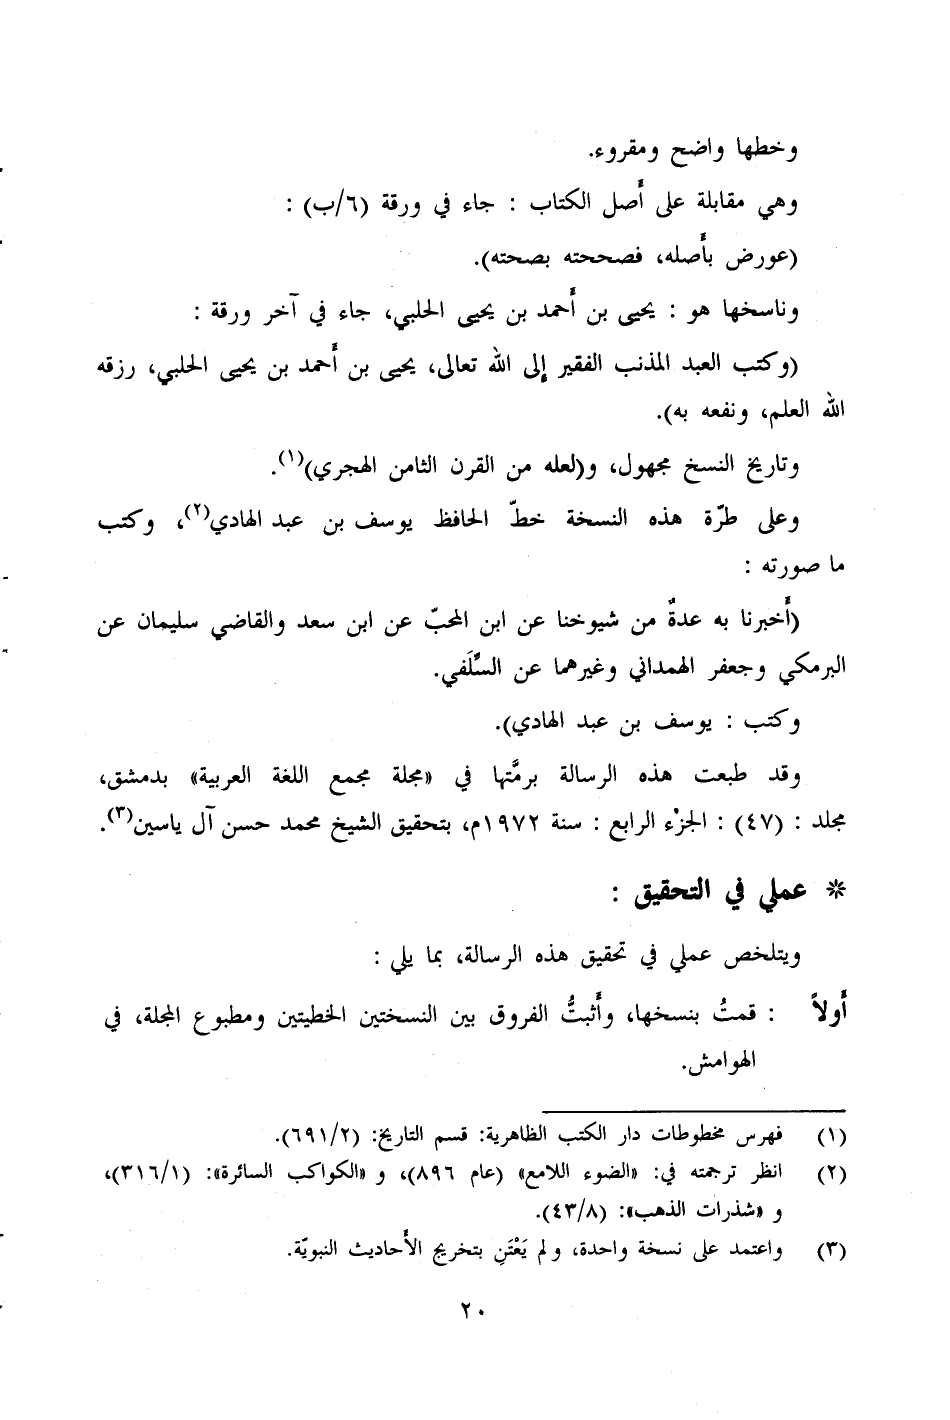 وخطها واضح ومقروء.
وهي مقابلة على أَصل الكتاب : جاء في ورقة (٦/ب) :
(عورض بأَصله، فصححته بصحته).
وناسخها هو : يحيى بن أَحمد بن يحيى الحلبي، جاء في آخر ورقة :
(وكتب العبد المذنب الفقير إلى الله تعالى، يحيى بن أَحمد بن يحيى الحلبي، رزقه
الله العلم، ونفعه به).
وتاريخ النسخ مجهول، و(لعله من القرن الثامن الهجري)(١).
وعلى طرّة هذه النسخة خطّ الحافظ يوسف بن عبد الهادي(٢)، وكتب
ما صورته :
(أَخبرنا به عدةٌ من شيوخنا عن ابن المحبّ عن ابن سعد والقاضي سليمان عن
البرمكي وجعفر الهمداني وغيرهما عن السِّلَفي.
وكتب : يوسف بن عبد الهادي).
وقد طبعت هذه الرسالة برمَّتها في «مجلة مجمع اللغة العربية» بدمشق،
مجلد : (٤٧) : الجزْء الرابع : سنة ١٩٧٢م، بتحقيق الشيخ محمد حسن آل ياسين(٣).
* عملي في التحقيق :
ويتلخص عملي في تحقيق هذه الرسالة، بما يلي :
أَولاً : قمتُ بنسخها، وأَثبتُّ الفروق بين النسختين الخطيتين ومطبوع المجلة، في
الهوامش.
(١) فهرس مخطوطات دار الكتب الظاهرية: قسم التاريخ: (٦٩١/٢).
(٢) انظر ترجمته في: «الضوء اللامع» (عام ٨٩٦)، و «الكواكب السائرة»: (٣١٦/١)،
و «شذرات الذهب»: (٤٣/٨).
(٣) واعتمد على نسخة واحدة، ولم يَعْتَنِ بتخريج الأَحاديث النبويّة.
٢٠